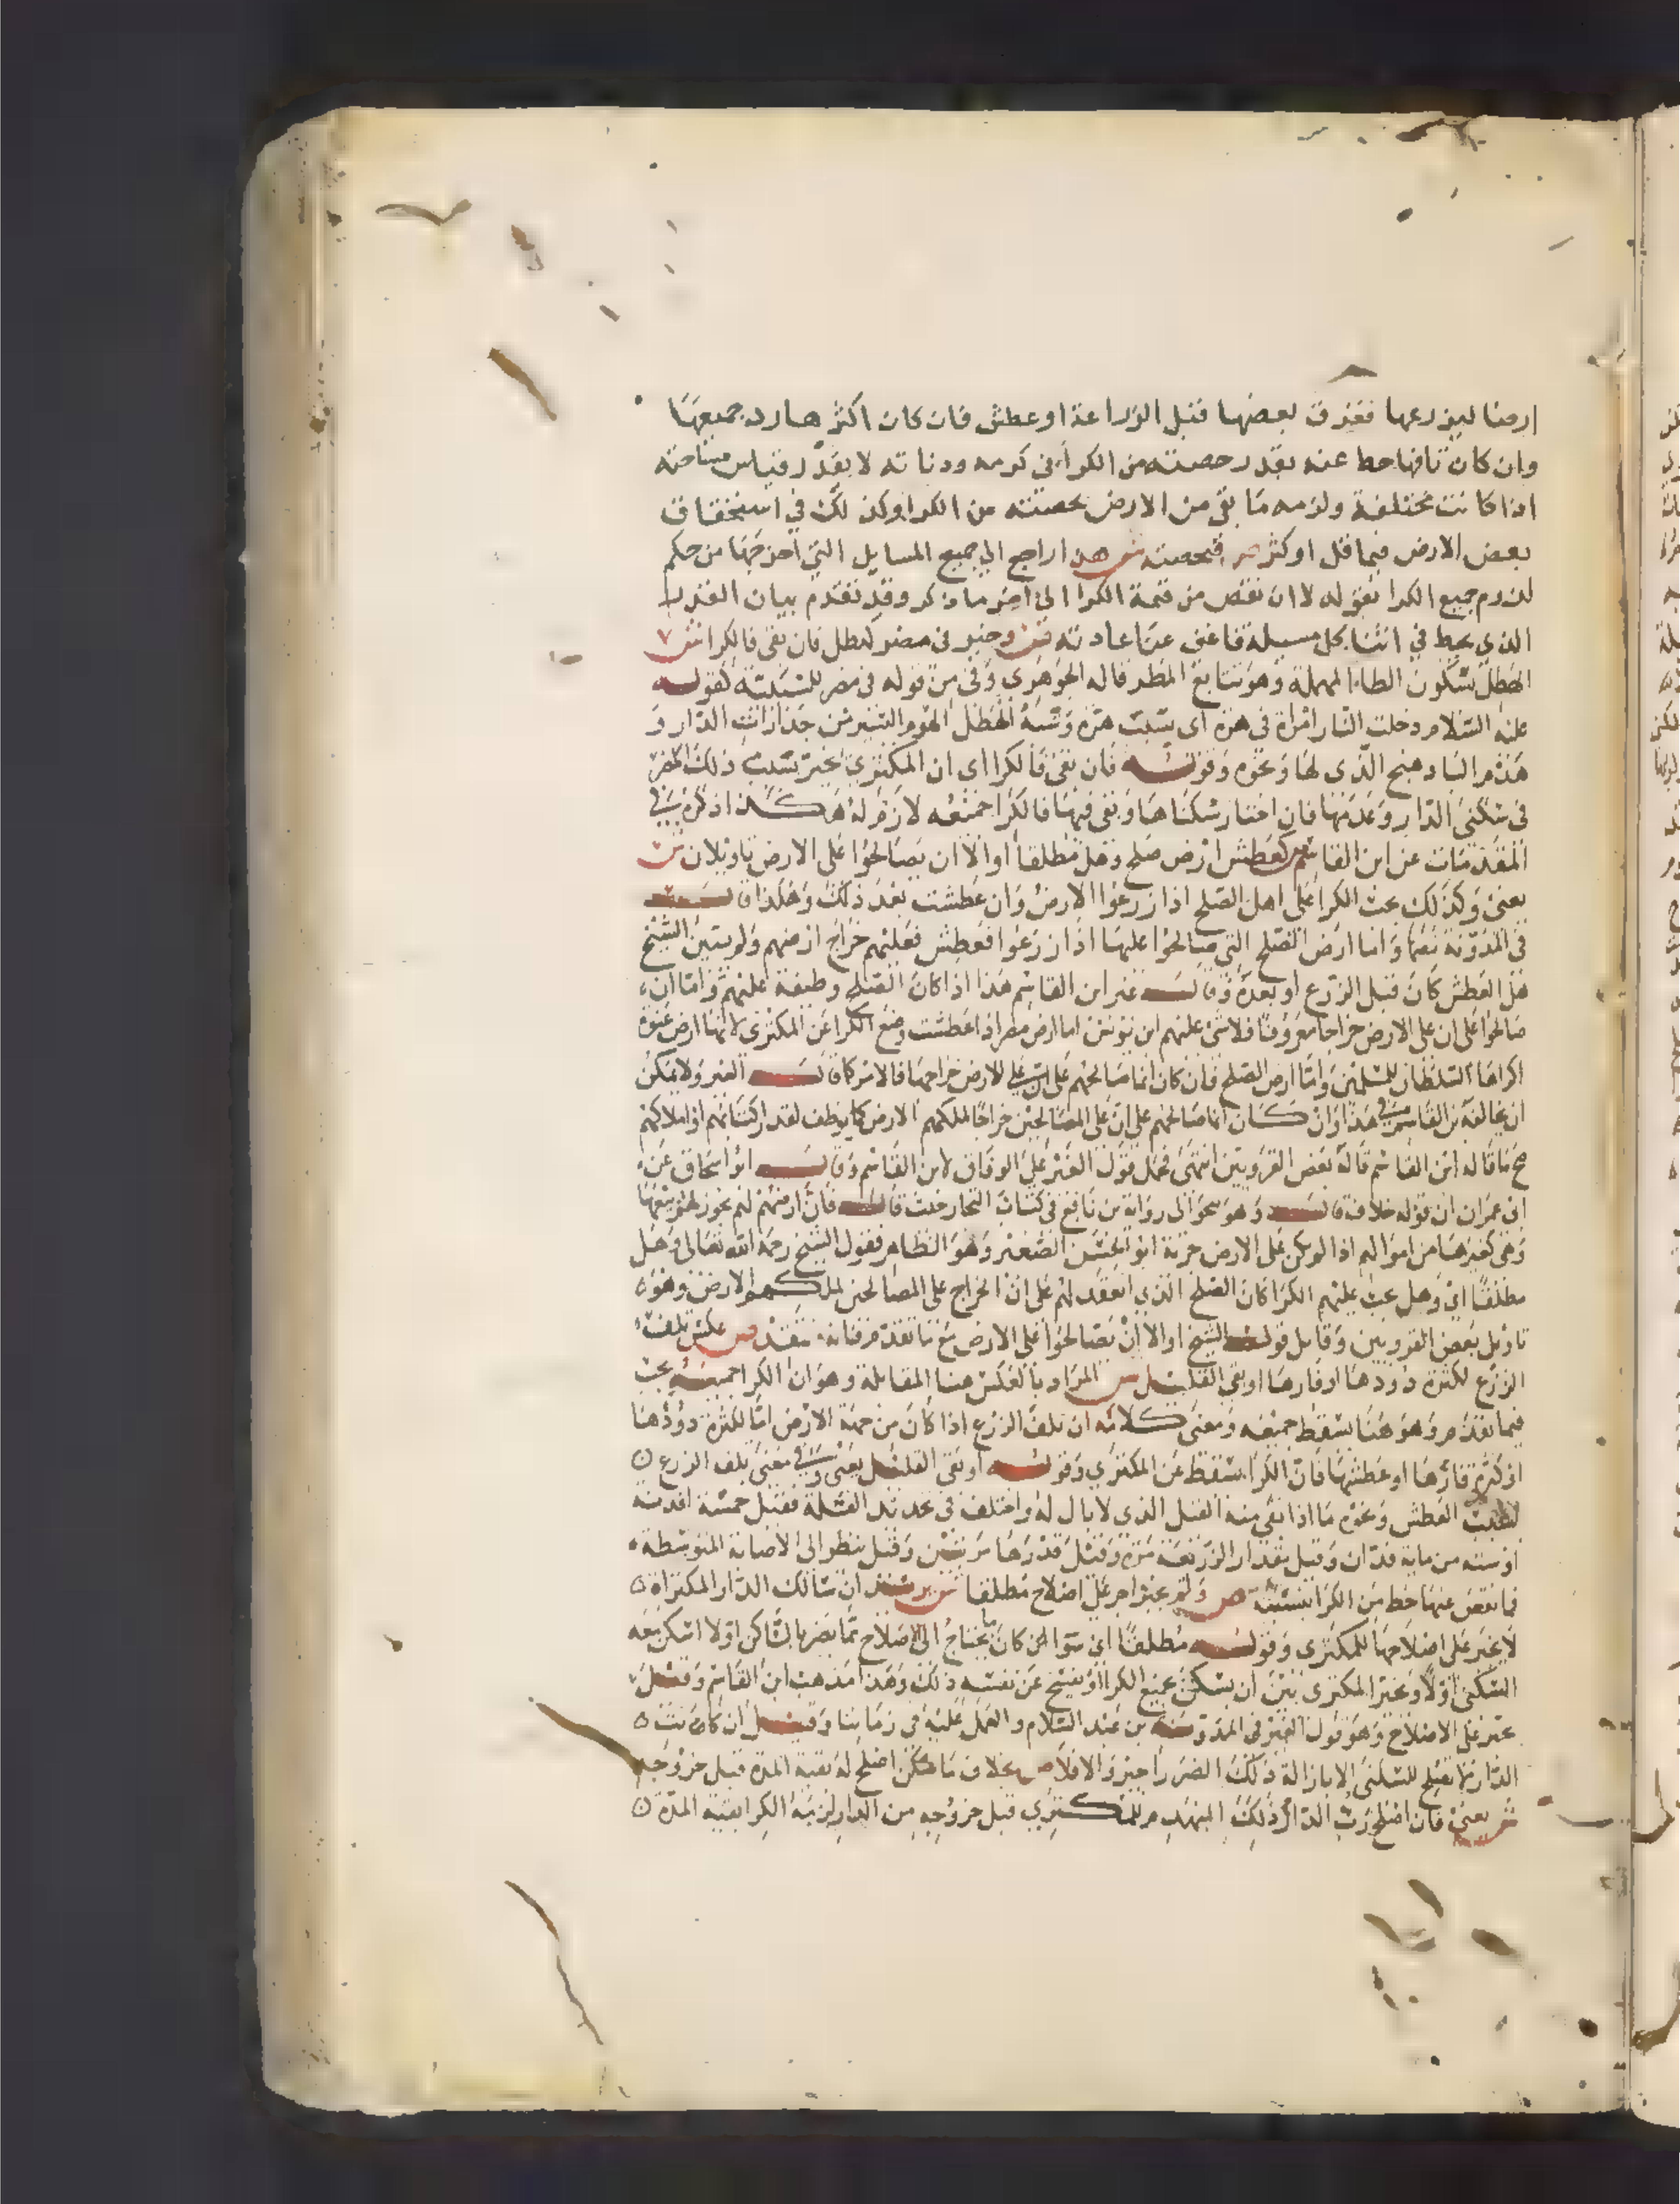 ارضا ليزرعها فغرق بعضها قبل الزراعة او عطش فان كان اكثرها رد جميعها
وان كان تافها حط عنه بقدر حصته من الكراء في كرمه ودناته لا بقدر قياس مساحته
اذا كانت مختلفة ولزمه ما بقى من الارض بحصته من الكرا وكذلك في استحقاق
بعض الارض فيما قل او كثر ص فبحصته ش هذا راجع الي جميع المسايل التي اخرجها من حكم
لزوم جميع الكرا بقوله لا ان نقص من قيمة الكرا الى اخر ما ذكر وقد تقدم بيان القدر
الذي يحط في اثنا كل مسيلة فاغنى عن اعادته وخير في مضر كهطل فان بقى فالكرا ش
الهطل بسكون الطاء المهملة وهو تتابع المطر قاله الجوهري وفي من قوله في مضر للسببية كقوله
عليه السلام دخلت النار امراة في هرة اى بسبب هرة وشبه الهطل الهدم اليسير من جدارات الدار و
هدم الباد هنج الذى لها ونحوه وقوله فان بقى فالكرا اى ان المكترى يخير بسبب ذلك المضر
في سكنى الدار وعدمها فان اختار سكناها وبقى فيها فالكرا جميعه لازم له هكذا ذكره في
المقدمات عن ابن القاسم ص كعطش ارض صلح وهل مطلقا او الا ان يصالحوا على الارض تاويلان ش
يعنى وكذلك يجب الكرا على اهل الصلح اذا زرعوا الارض وان عطشت بعد ذلك وهكذا قال
في المدونة نصها واما ارض الصلح التي صالحوا عليها اذا زرعوا فعطش فعليهم خراج ارضهم ولو يبين الشيخ
هل العطش كان قبل الزرع او بعده وقال غير ابن القاسم هذا اذا كان الصلح وظيفة عليهم واما ان
صالحوا على ان على الارض خراجا معروفا فلا شى عليهم ابن يونس اما ارض مصر اذا عطشت وضع الكرا عن المكترى لانها ارض عنوة
اكراها السلطان للمسلمين واما ارض الصلح فان كان انما صالحهم على ان على الارض خراجها فالامر كما قال الغير ولا يمكن
ان يخالفه بن القاسم في هذا وان كان انما صالحهم على ان على المصالحين خراجا لملكهم الارض كما يوظف لقدر اكتسابهم او املاكهم
صح ما قاله ابن القاسم قاله بعض القرويين انتهى فحمل قول الغير على الوفاق لابن القاسم وقال ابو اسحاق عن
ابى عمران ان قوله خلاف قال وهو نحو الى رواية بن نافع في كتاب التجار حيث قال فان ارضهم لهم يجوز لهم بيعها
وهى كغيرها من اموالهم اذا لم يكن على الارض جزية ابو الحسن الصغير وهو الظاهر فقول الشيخ رحمه الله تعالى وهل
مطلقا اي وهل يجب عليهم الكرا كان الصلح الذي انعقد لهم على ان الخراج على المصالحين لملكهم الارض وهو
تاويل بعض القرويين وقابل قول الشيخ او الا ان يصالحوا على الارض مع ما تقدم فانه ينقد ص عكس تلف
الزرع لكثرة دودها او فارها او بقى القليل ش المراد بالعكس هنا المقابلة وهو ان الكرا جميعه يجب
فيما تقدم وهو هنا يسقط جميعه ومعنى كلامه ان تلف الزرع اذا كان من جهة الارض اما لكثرة دودها
او كثرة فارها او عطشها فان الكرا يسقط عن المكتري وقوله او بقى القليل يعنى وفي معنى تلف الزرع
العطش ونحوه ما اذا بقى منه القليل الذى لا بال له واختلف في تحديد القلة فقيل خمسة افدنة
او ستة من ماية فدان وقيل مقدار الزريعة مرة وقيل قدرها مرتين وقيل ينظر الى الاصابة المتوسطة
فما نقص عنها حط من الكرا بنسبته ص ولم يجبر اجر على اصلاح مطلقا ش يريد ان مالك الدار المكتراة
لا يجبر على اصلاحها للمكترى وقوله مطلقا اى سوا كان ما يحتاج الى الاصلاح مما يضر بالساكن او لا امكن معه
السكنى اولا ويخير المكترى بين ان يسكن بجميع الكرا او يفسخ عن نفسه ذلك وهذا مذهب ابن القاسم وقيل
يجبر على الاصلاح وهو قول الغير في المدونة بن عبد السلام والعمل عليه في زماننا وقيل ان كانت
الدار لا تصلح للسكنى الا بازالة ذلك الضرر اجبر والا فلا ص بخلاف ساكن اصلح له بقية المدة قبل خروجه
ش يعنى فان اصلح رب الدار ذلك المنهدم للمكتري قبل خروجه من الدار لزمه الكرا بقية المدة